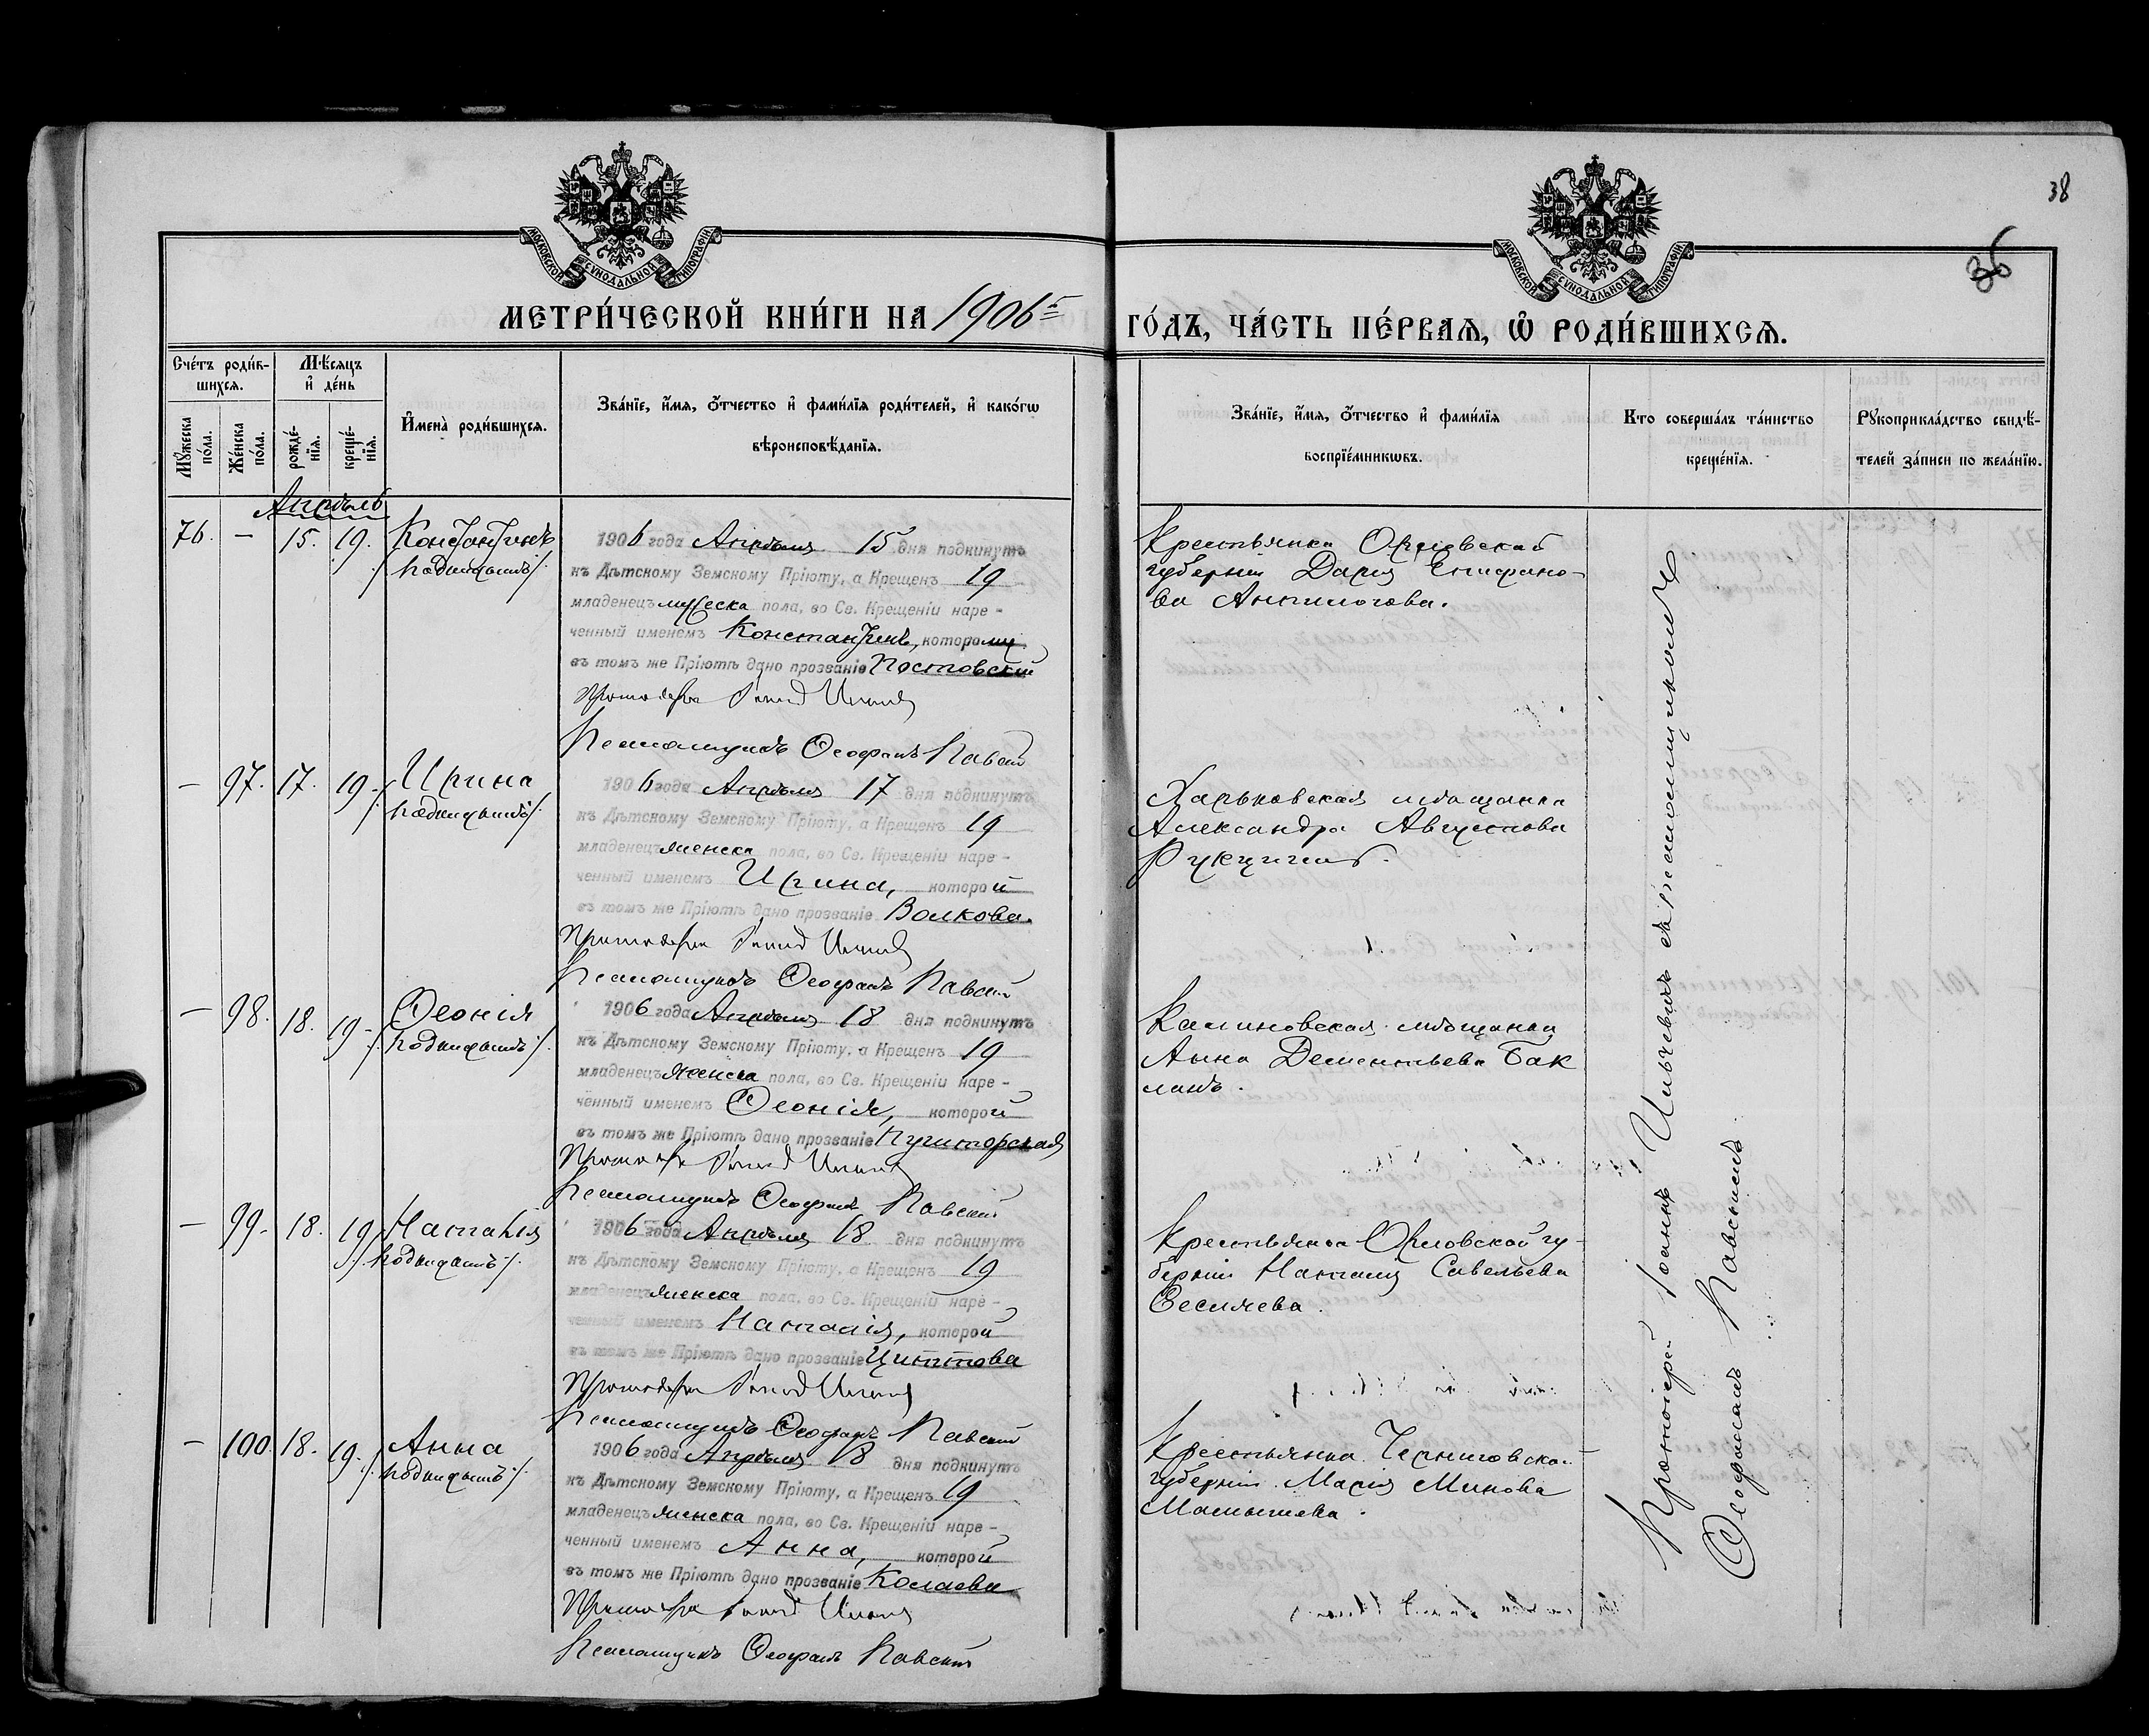 38
36
МОСКОВСКОЙ СУНОДАЛЬНОЙ ТИПОГРАФІИ
МОСКОВСКОЙ СУНОДАЛЬНОЙ ТИПОГРАФІИ
МЕТРИ́ЧЕСКОЙ КНИ́ГИ НА 1906 г.
ГО́ДЪ, ЧА́СТЬ ПЕ́РВАЯ, Ѡ҆ РОДИ́ВШИХСЯ.
Сче́тъ роди́в-
шихся.
Мꙋ́жеска по́ла.
Же́нска по́ла.
Мѣ́сяцъ
и҆ де́нь
рожде́-
нїя.
креще́-
нїя.
И҆мена̀ роди́вшихся.
Зва́нїе, и҆́мя, ѻ҆́тчество и҆ фами́лїя роди́телей, и҆ како́гѡ
вѣроисповѣ́данїя.
Зва́нїе, и҆́мя, ѻ҆́тчество и҆ фами́лїя
воспрїе́мникѡвъ.
Кто соверша́лъ та́инство
креще́нїя.
Рꙋкоприкла́дство свидѣ́-
телей за́писи по жела́нїю.
Апрѣль
76. — 15. 19. Константинъ
/подкидышъ/.
1906 года Апрѣля 15 дня подкинутъ
къ Дѣтскому Земскому Пріюту, а Крещенъ 19
младенецъ мужеска пола, во Св. Крещеніи наре-
ченный именемъ Константинъ, которому
въ томъ же Пріютѣ дано прозваніе Постовскій
Псаломщикъ Ѳеофанъ Павскій
Крестьянка Орловской
губерніи Дарія Епифано-
ва Антипогова.
— 97. 17. 19. Ирина
/подкидышъ/.
1906 года Апрѣля 17 дня подкинутъ
къ Дѣтскому Земскому Пріюту, а Крещенъ 19
младенецъ женска пола, во Св. Крещеніи наре-
ченный именемъ Ирина, которой
въ томъ же Пріютѣ дано прозваніе Волкова.
Псаломщикъ Ѳеофанъ Павскій
Харьковская мѣщанка
Александра Августова
— 98. 18. 19. Ѳеонія
/подкидышъ/.
1906 года Апрѣля 18 дня подкинутъ
къ Дѣтскому Земскому Пріюту, а Крещенъ 19
младенецъ женска пола, во Св. Крещеніи наре-
ченный именемъ Ѳеонія, которой
въ томъ же Пріютѣ дано прозваніе
Псаломщикъ Ѳеофанъ Павскій
Калиновская мѣщанка
Анна Дементьева Бак
ланъ.
— 99. 18. 19. Наталія
/подкидышъ/.
1906 года Апрѣля 18 дня подкинутъ
къ Дѣтскому Земскому Пріюту, а Крещенъ 19
младенецъ женска пола, во Св. Крещеніи наре-
ченный именемъ Наталія, которой
въ томъ же Пріютѣ дано прозваніе
Псаломщикъ Ѳеофанъ Павскій
Крестьянка Орловской гу-
берніи Наталія Савельева
— 100. 18. 19. Анна
/подкидышъ/.
1906 года Апрѣля 18 дня подкинутъ
къ Дѣтскому Земскому Пріюту, а Крещенъ 19
младенецъ женска пола, во Св. Крещеніи наре-
ченный именемъ Анна, которой
въ томъ же Пріютѣ дано прозваніе Колаева
Псаломщикъ Ѳеофанъ Павскій
Крестьянка Черниговской
губерніи Марія Минова
Малышева.
Протоіерей Іоаннъ Ильчевичъ съ псаломщикомъ
Ѳеофаномъ Павскимъ.